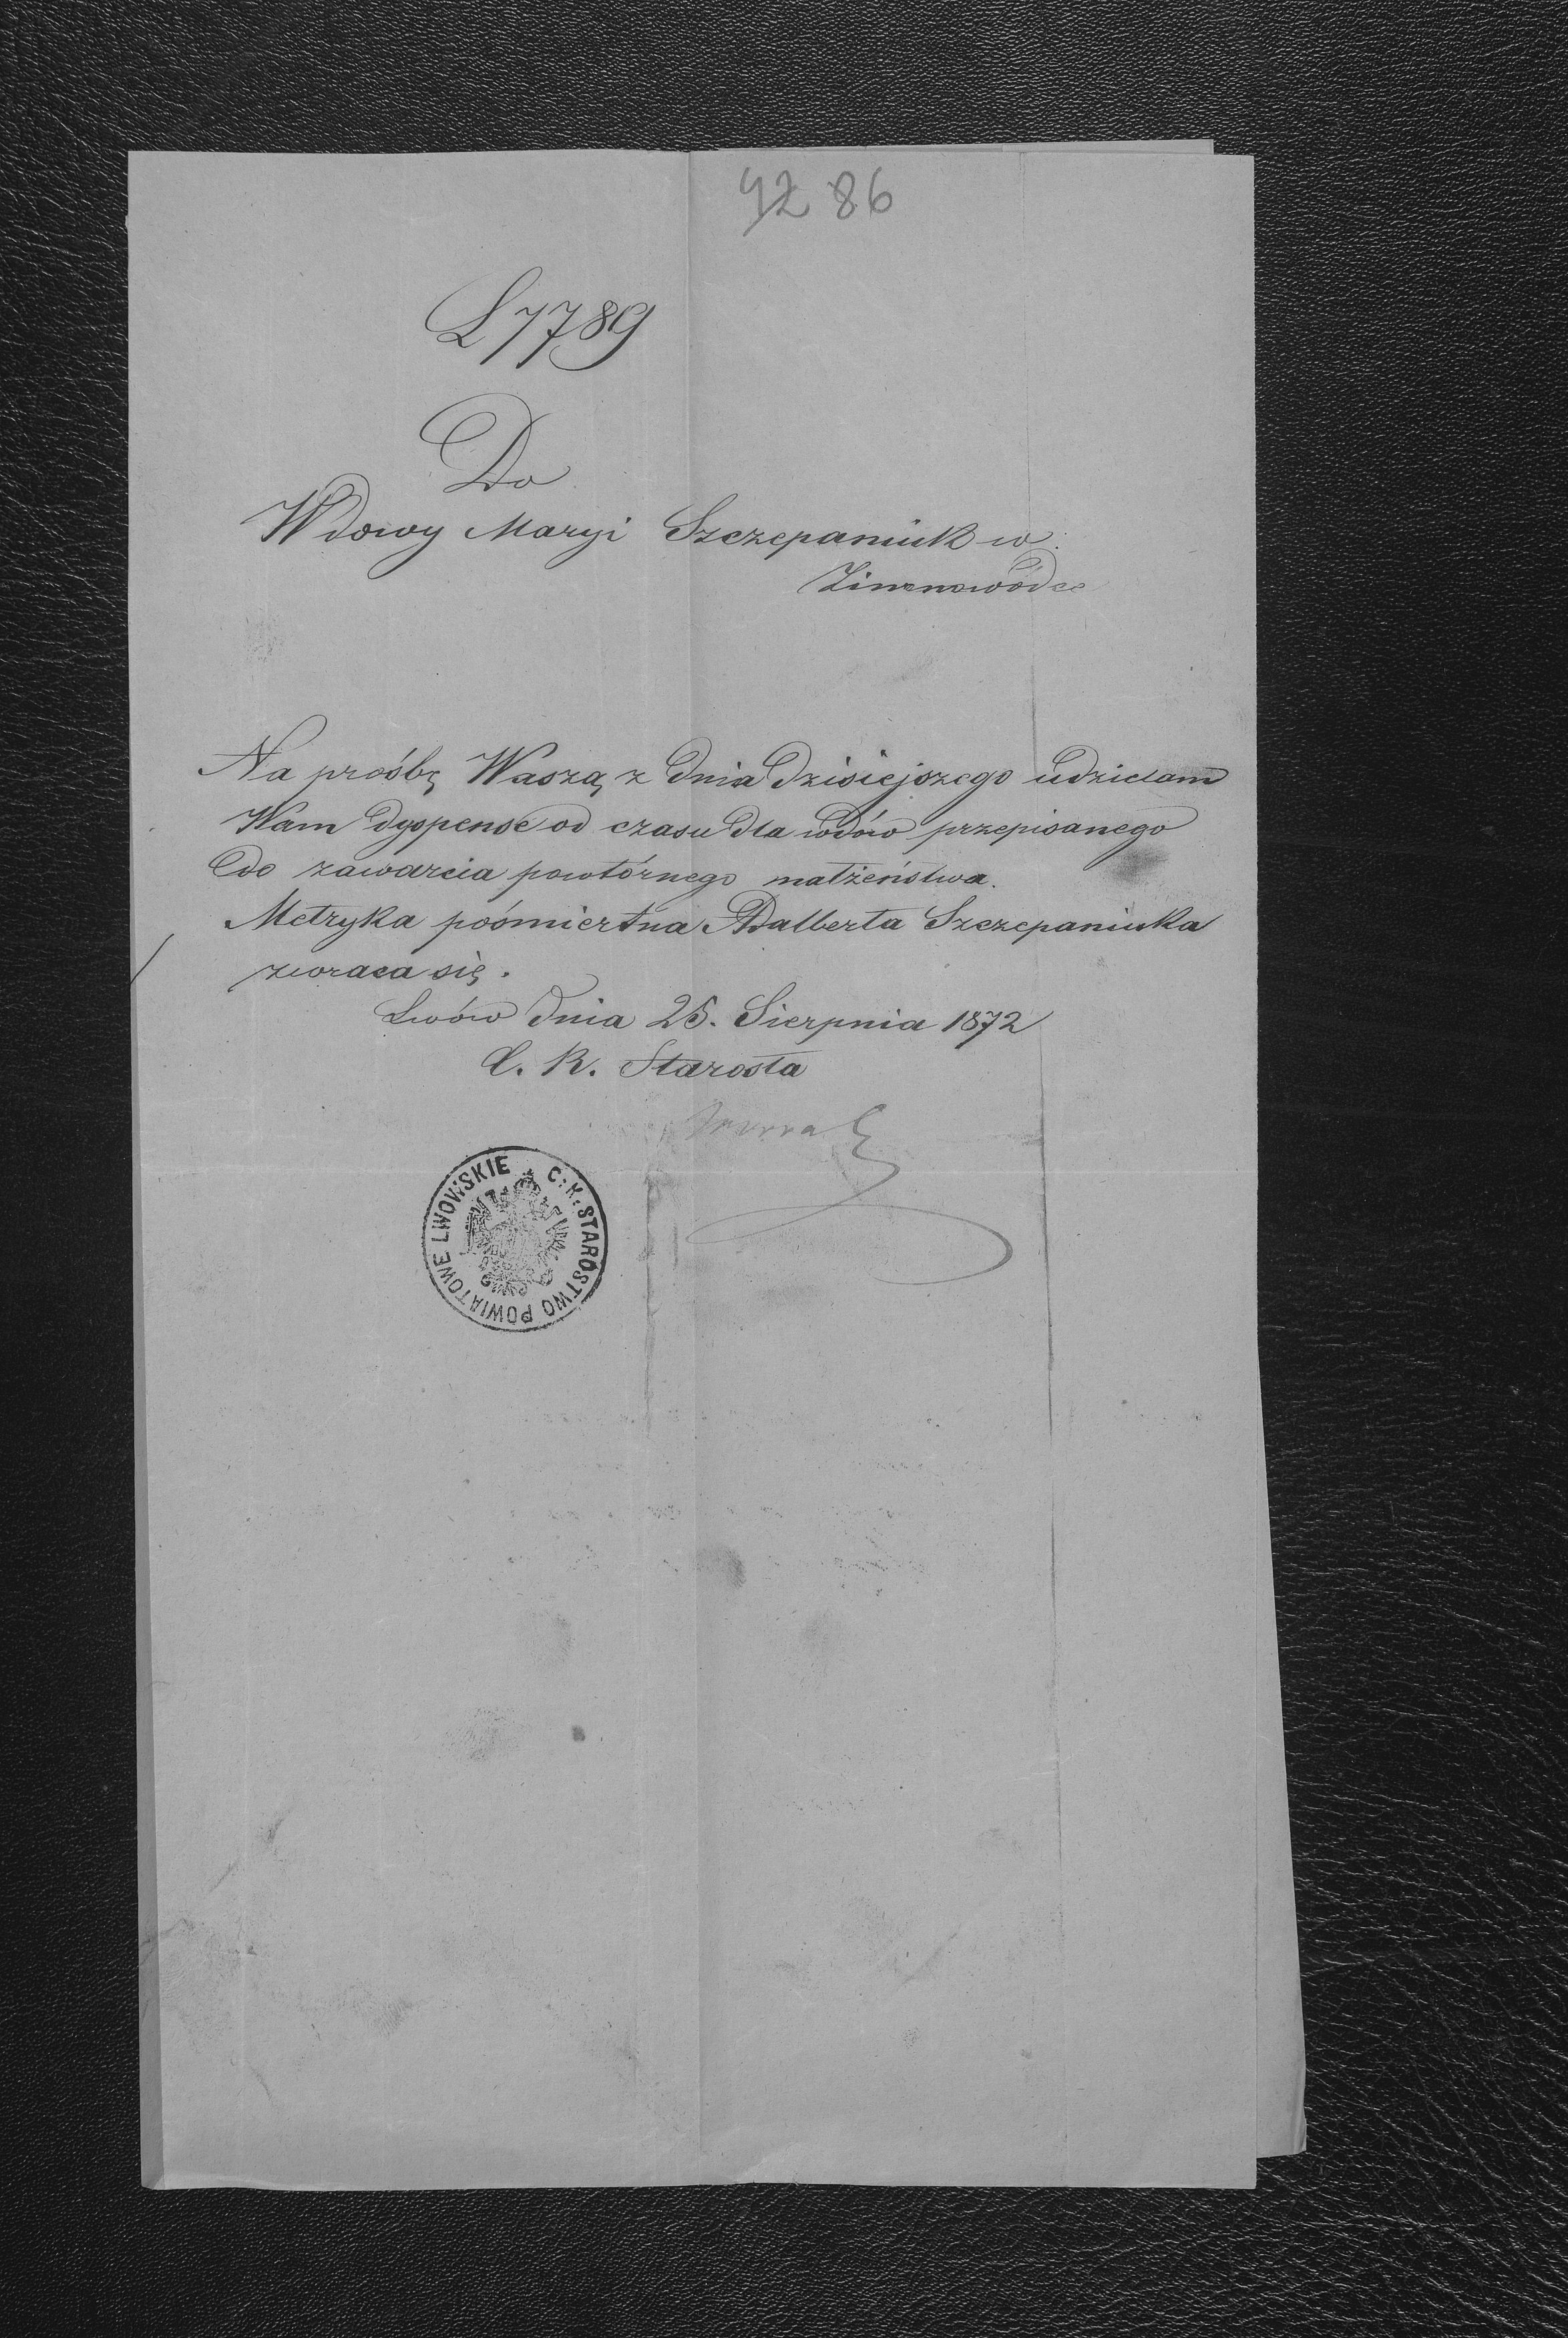 42 86
L 7789
Do
Wdowy Maryi Szczepaniuk w
Zimnowódce
Na prośbę Waszą z dnia dzisiejszego udzielam
Wam dyspensę od czasu dla wdów przepisanego
do zawarcia powtórnego małżeństwa.
Metryka pośmiertna Adalberta Szczepaniuka
zwraca się.
Lwów dnia 25. Sierpnia 1872
C. K. Starosta
C. K. STAROSTWO POWIATOWE LWOWSKIE